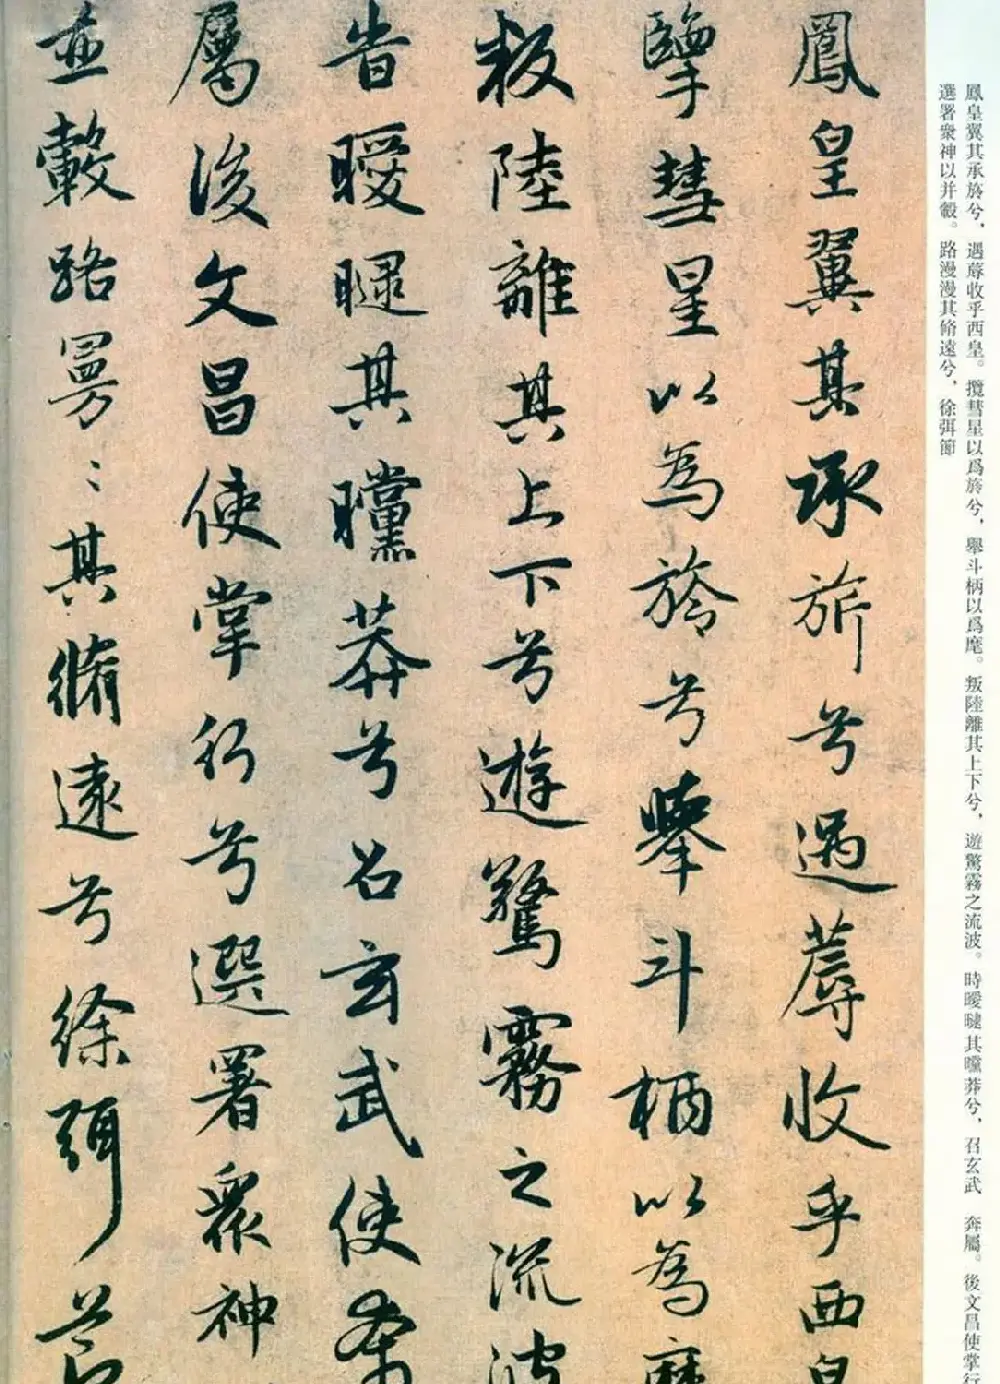 鳳皇翼其承旂兮，遇蓐收乎西皇。攬彗星以爲旍兮，舉斗柄以爲麾。叛陸離其上下兮，遊驚霧之流波。時曖曃其曭莽兮，召玄武 奔屬。後文昌使掌行
選署衆神以并轂。路漫漫其脩遠兮，徐弭節
鳳皇翼其承旂兮遇蓐收乎西皇
擥彗星以為旍兮舉斗柄以為麾
叛陸離其上下兮遊驚霧之流波
旹曖曃其曭莽兮召玄武使奔
屬後文昌使掌行兮選署衆神
並轂路曼〻其脩遠兮徐弭節